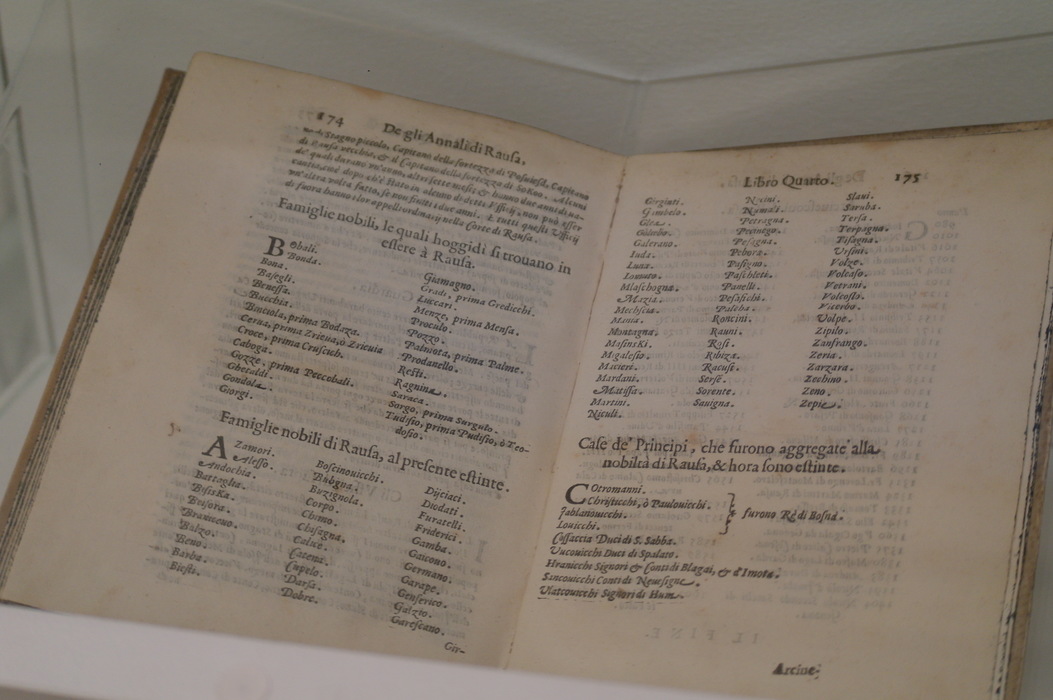 174 De gli Annali di Rausa,
no di Stagno piccolo, Capitano della fortezza di Capitano
di Rausa vecchio, & il Capitano della fortezza di SoKoo. Alcuni
de' quali durano m'anno, altri sette mesi & hanno due anni di ua-
cantia, cioè dopo ch'è stato in alcuno di detti Vfficij, non può esser
vn'altra volta fatto, se non finiti i due anni. E tutti questi Vfficij
di fuora hanno i lor appelli ordinarij nella Corte di Rausa.
Famiglie nobili, le quali hoggidì si trouano in
essere à Rausa.
Bobali.
Bonda.
Bona.
Basegli.
Benessa.
Bucchia.
Bocciola, prima Bodaza.
Cerua, prima Zrieua, ò Zrieuia
Croce, prima Crusicch.
Caboga.
Gozze, prima Peccobali.
Ghetaldi.
Gondola.
Giorgi.
Giamagno.
Gradi, prima Gredicchi.
Luccari.
Menze, prima Mensa.
Proculo.
Pozzo.
Palmota, prima Palme.
Prodanello.
Resti.
Ragnina.
Saraca.
Sorgo, prima Surgulo.
Tudisio, prima Pudisio, ò Teo-
dosio.
Famiglie nobili di Rausa, al presente estinte.
AZamori.
Alesso.
Andochia.
Battaglia.
BisisKa.
Beno.
Barba.
Biesti.
Boscinouicchi.
Babgna.
Buzignola.
Corpo.
Chimo.
Chisagna.
Calue.
Catena.
Cupelo.
Darsa.
Dobre.
Dijciaci.
Diodati.
Furatelli.
Friderici.
Gamba.
Gaicono.
Germano.
Garape.
Genserico.
Galzio.
Garescano.
Gir-
Libro Quarto. 175
Girgiuti.
Gimbelo.
Galerano.
Iuda.
Luna.
Mlaschogna.
Mazia.
Montagna.
MasinsKi.
Migalesio.
Micieri.
Mardani.
Matissa.
Martini.
Niculi.
Petragna.
Prouinego.
Pesagna.
Pebora.
Paschleti.
Panelli.
Pesasichi.
Palcha.
Roncini.
Rauni.
Rosi.
Ribiza.
Racuse.
Serse.
Sorente.
Sauigna.
Slaui.
Saraba.
Tersa.
Terpagna.
Pisagna.
Vrsini.
Volze.
Volcaso.
Vetrani.
Volcosti.
Viterbo.
Volpe.
Zipilo.
Zanfrango.
Zeria.
Zarzara.
Zecbino.
Zeno.
Zepie.
Case de' Principi, che furono aggregate alla
nobiltà di Rausa, & hora sono estinte.
COtromanni.
Christicchi, ò Paulouicchi.
Jablanouicchi.
furono Rè di Bosna.
Louicchi.
Cossaccia Duci di S. Sabba.
Vucouicchi Duci di Spalato.
Hranicchi Signori & Conti di Blagai, & d'Imota.
Sancouicchi Conti di Neuesigne.
Vlatcouicchi Signori di Hum.
Arcine;